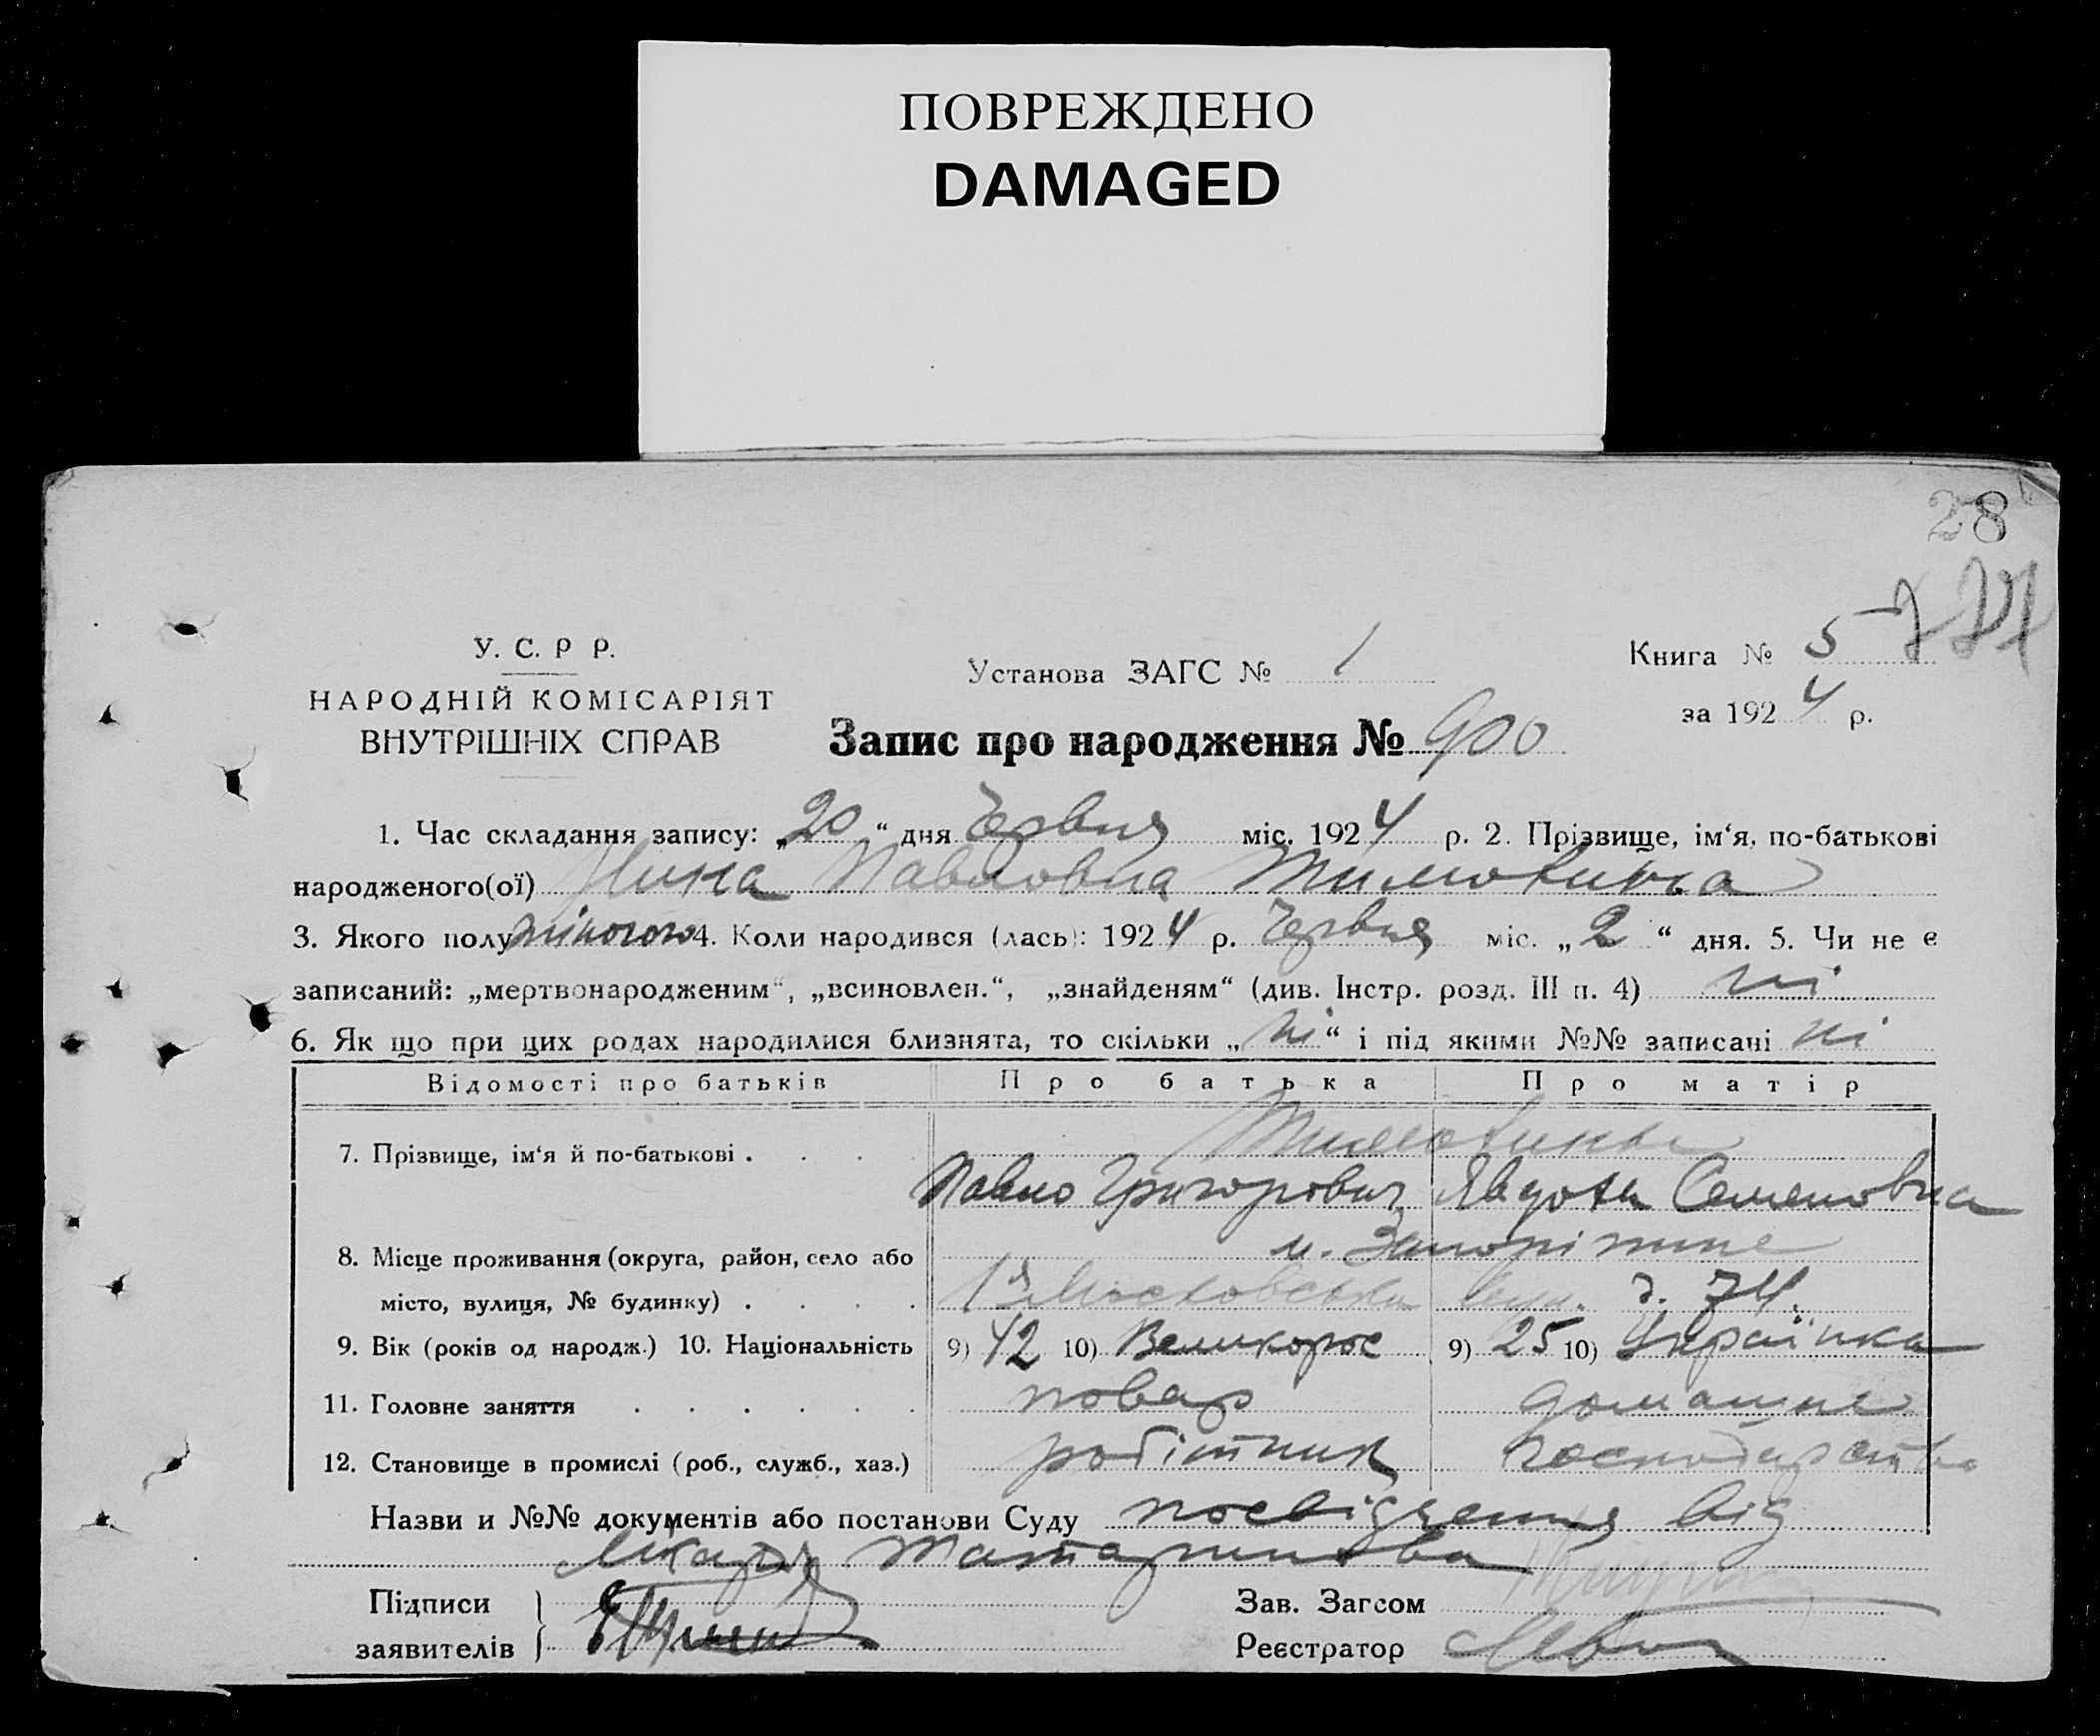 ПОВРЕЖДЕНО
DAMAGED
28
У. С. Р Р.
НАРОДНІЙ КОМІСАРІЯТ
ВНУТРІШНІХ СПРАВ
Установа ЗАГС № 1
Книга № 5
за 1924 р.
Запис про народження № 900
1. Час складання запису: „20“ дня Червня міс. 1924 р. 2. Прізвище, ім‘я, по-батькові
народженого(ої) Нина Павловна
3. Якого полу жіночого 4. Коли народився (лась): 1924 р. Червня міс. „2“ дня. 5. Чи не є
записаний: „мертвонародженим“, „всиновлен.“, „знайденям“ (див. Інстр. розд. III п. 4) ні
6. Як що при цих родах народилися близнята, то скільки „ні“ і під якими №№ записані ні
Відомості про батьків Про батька Про матір
7. Прізвище, ім‘я й по-батькові .
Павло Григорович Явдоха Семеновна
8. Місце проживання (округа, район, село або м. Запоріжже
місто, вулиця, № будинку) . Московська вул. д. 74.
9. Вік (років од народж.) 10. Національність 9) 42 10) Великорос 9) 25 10) Українка
11. Головне заняття повар домашне
12. Становище в промислі (роб., служб., хаз.) робітник господарство
Назви и №№ документів або постанови Суду посвідчення від
лікаря
Підписи
заявителів
Зав. Загсом
Реєстратор